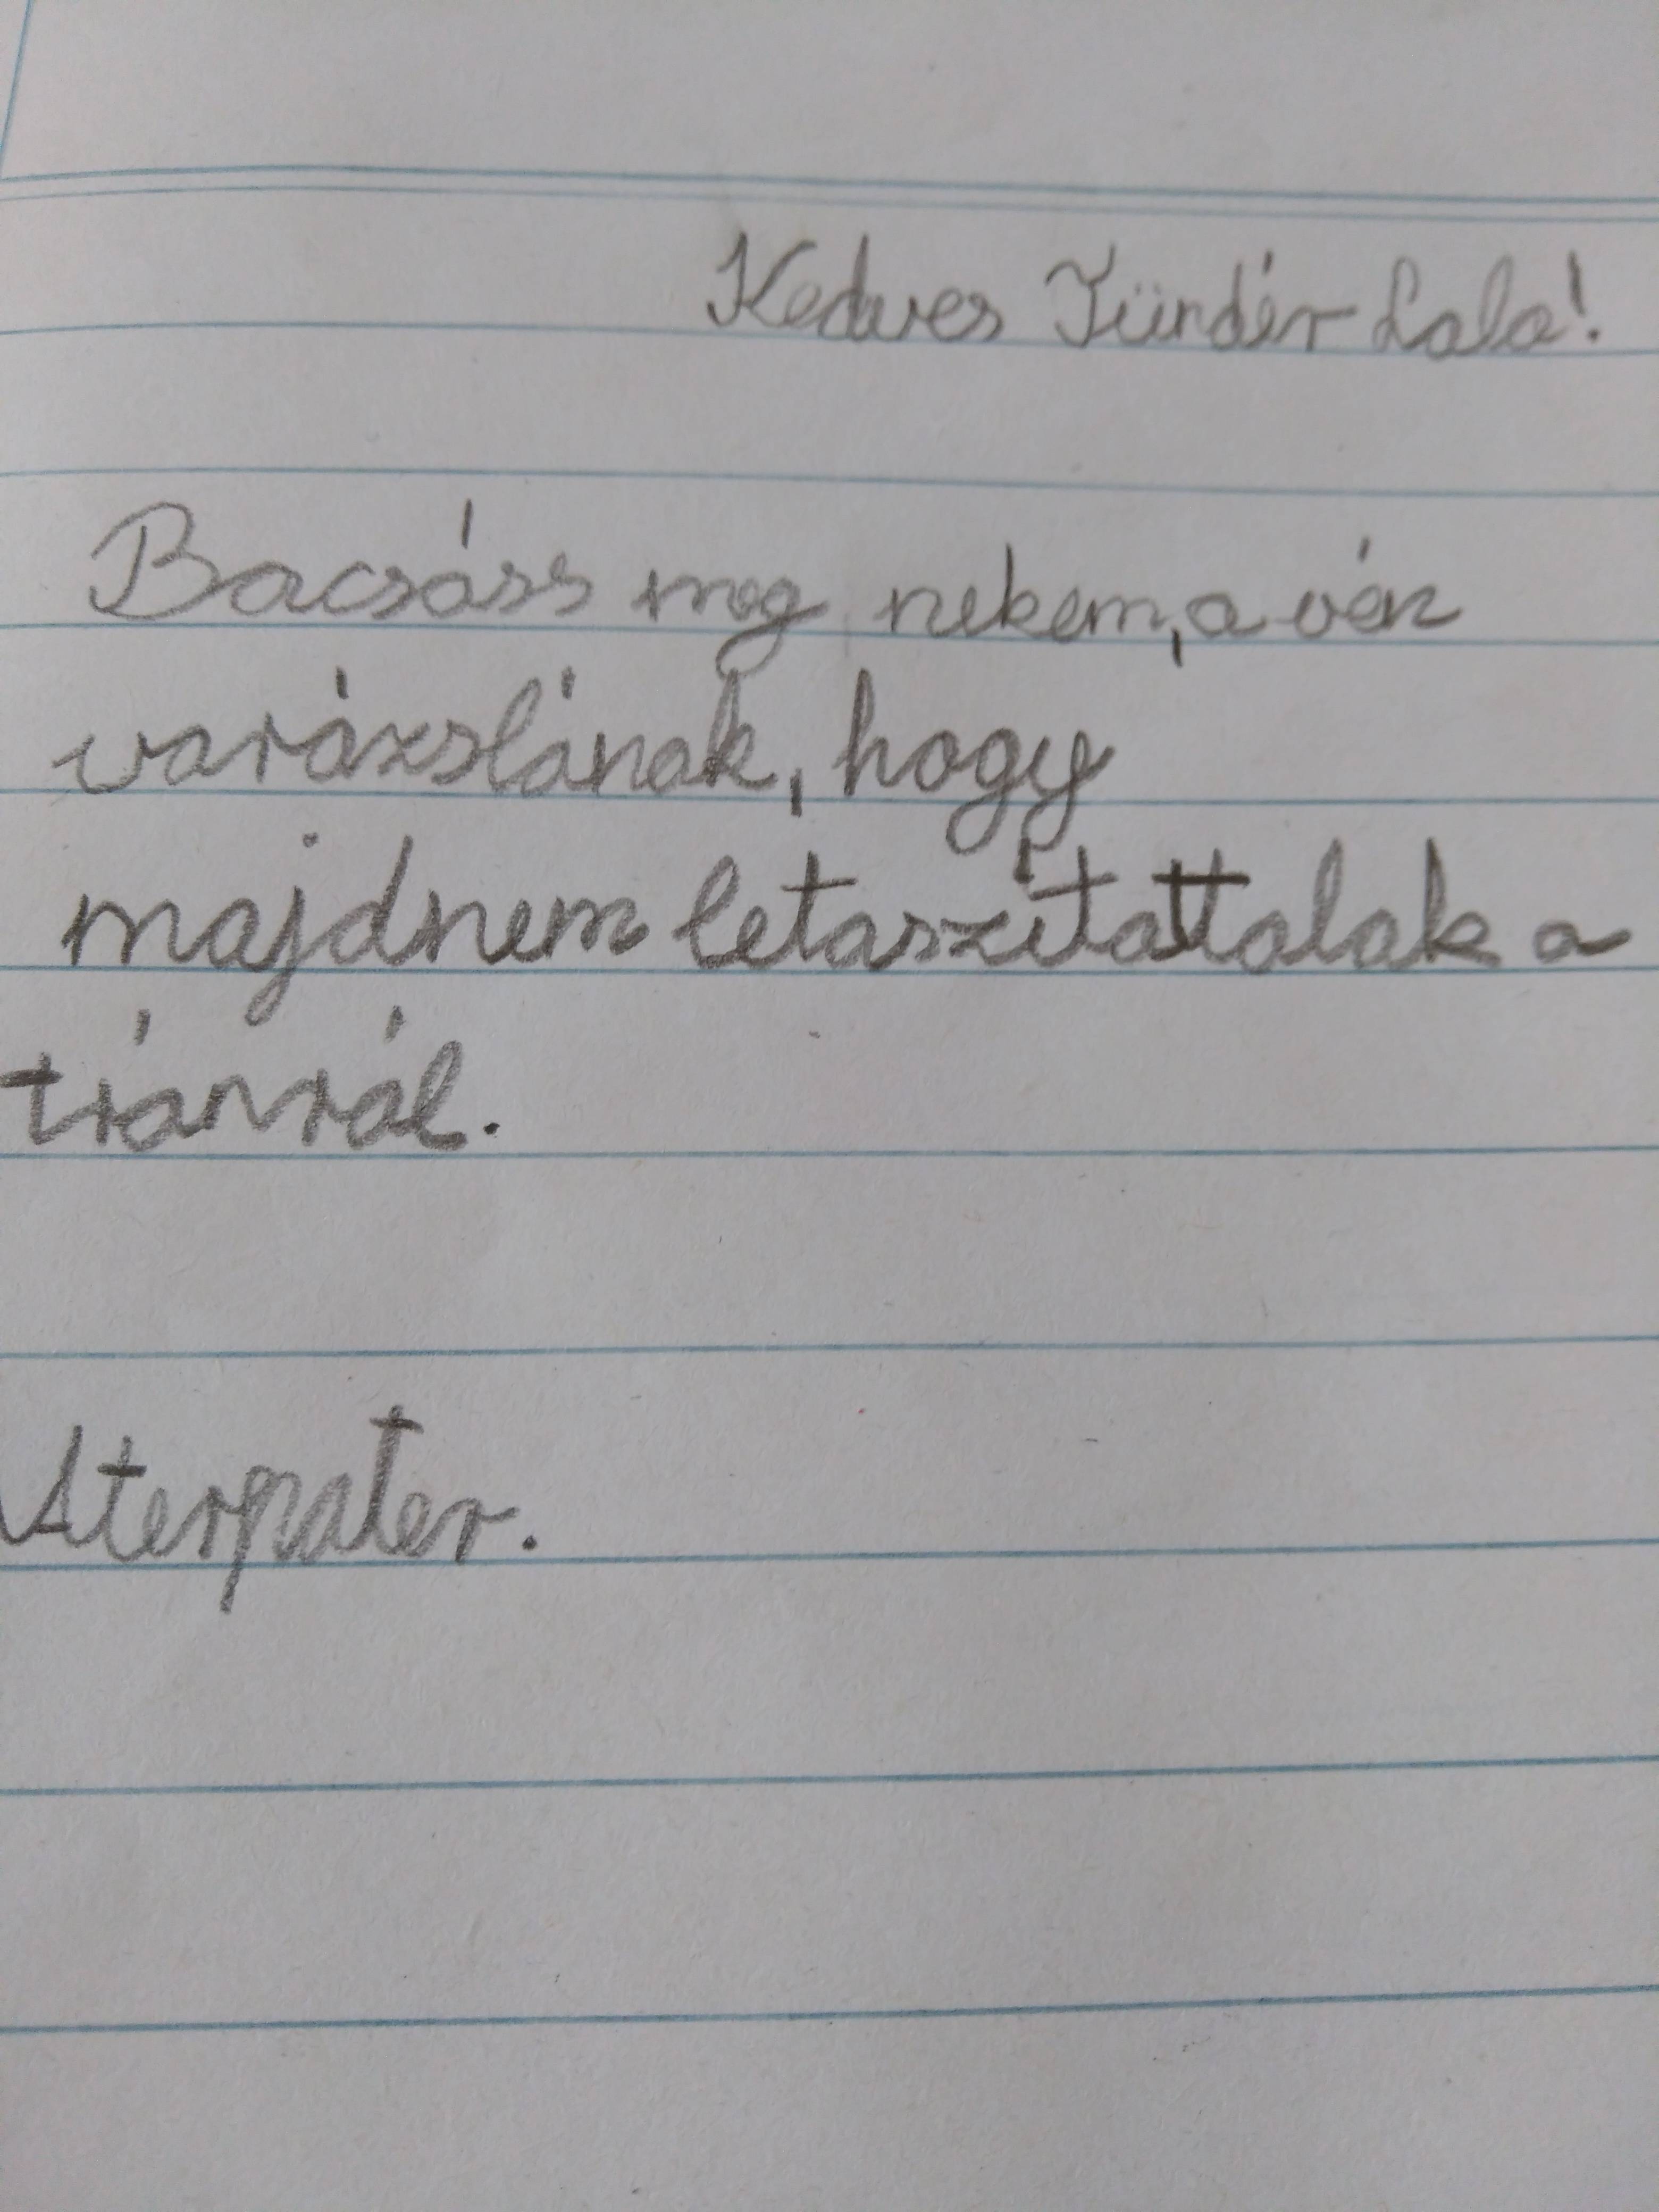 Kedves Tündér Lala!
Bocsáss meg nekem, a vén
varázslónak, hogy
majdnem letaszítottalak a
trónról.
Aterpater.